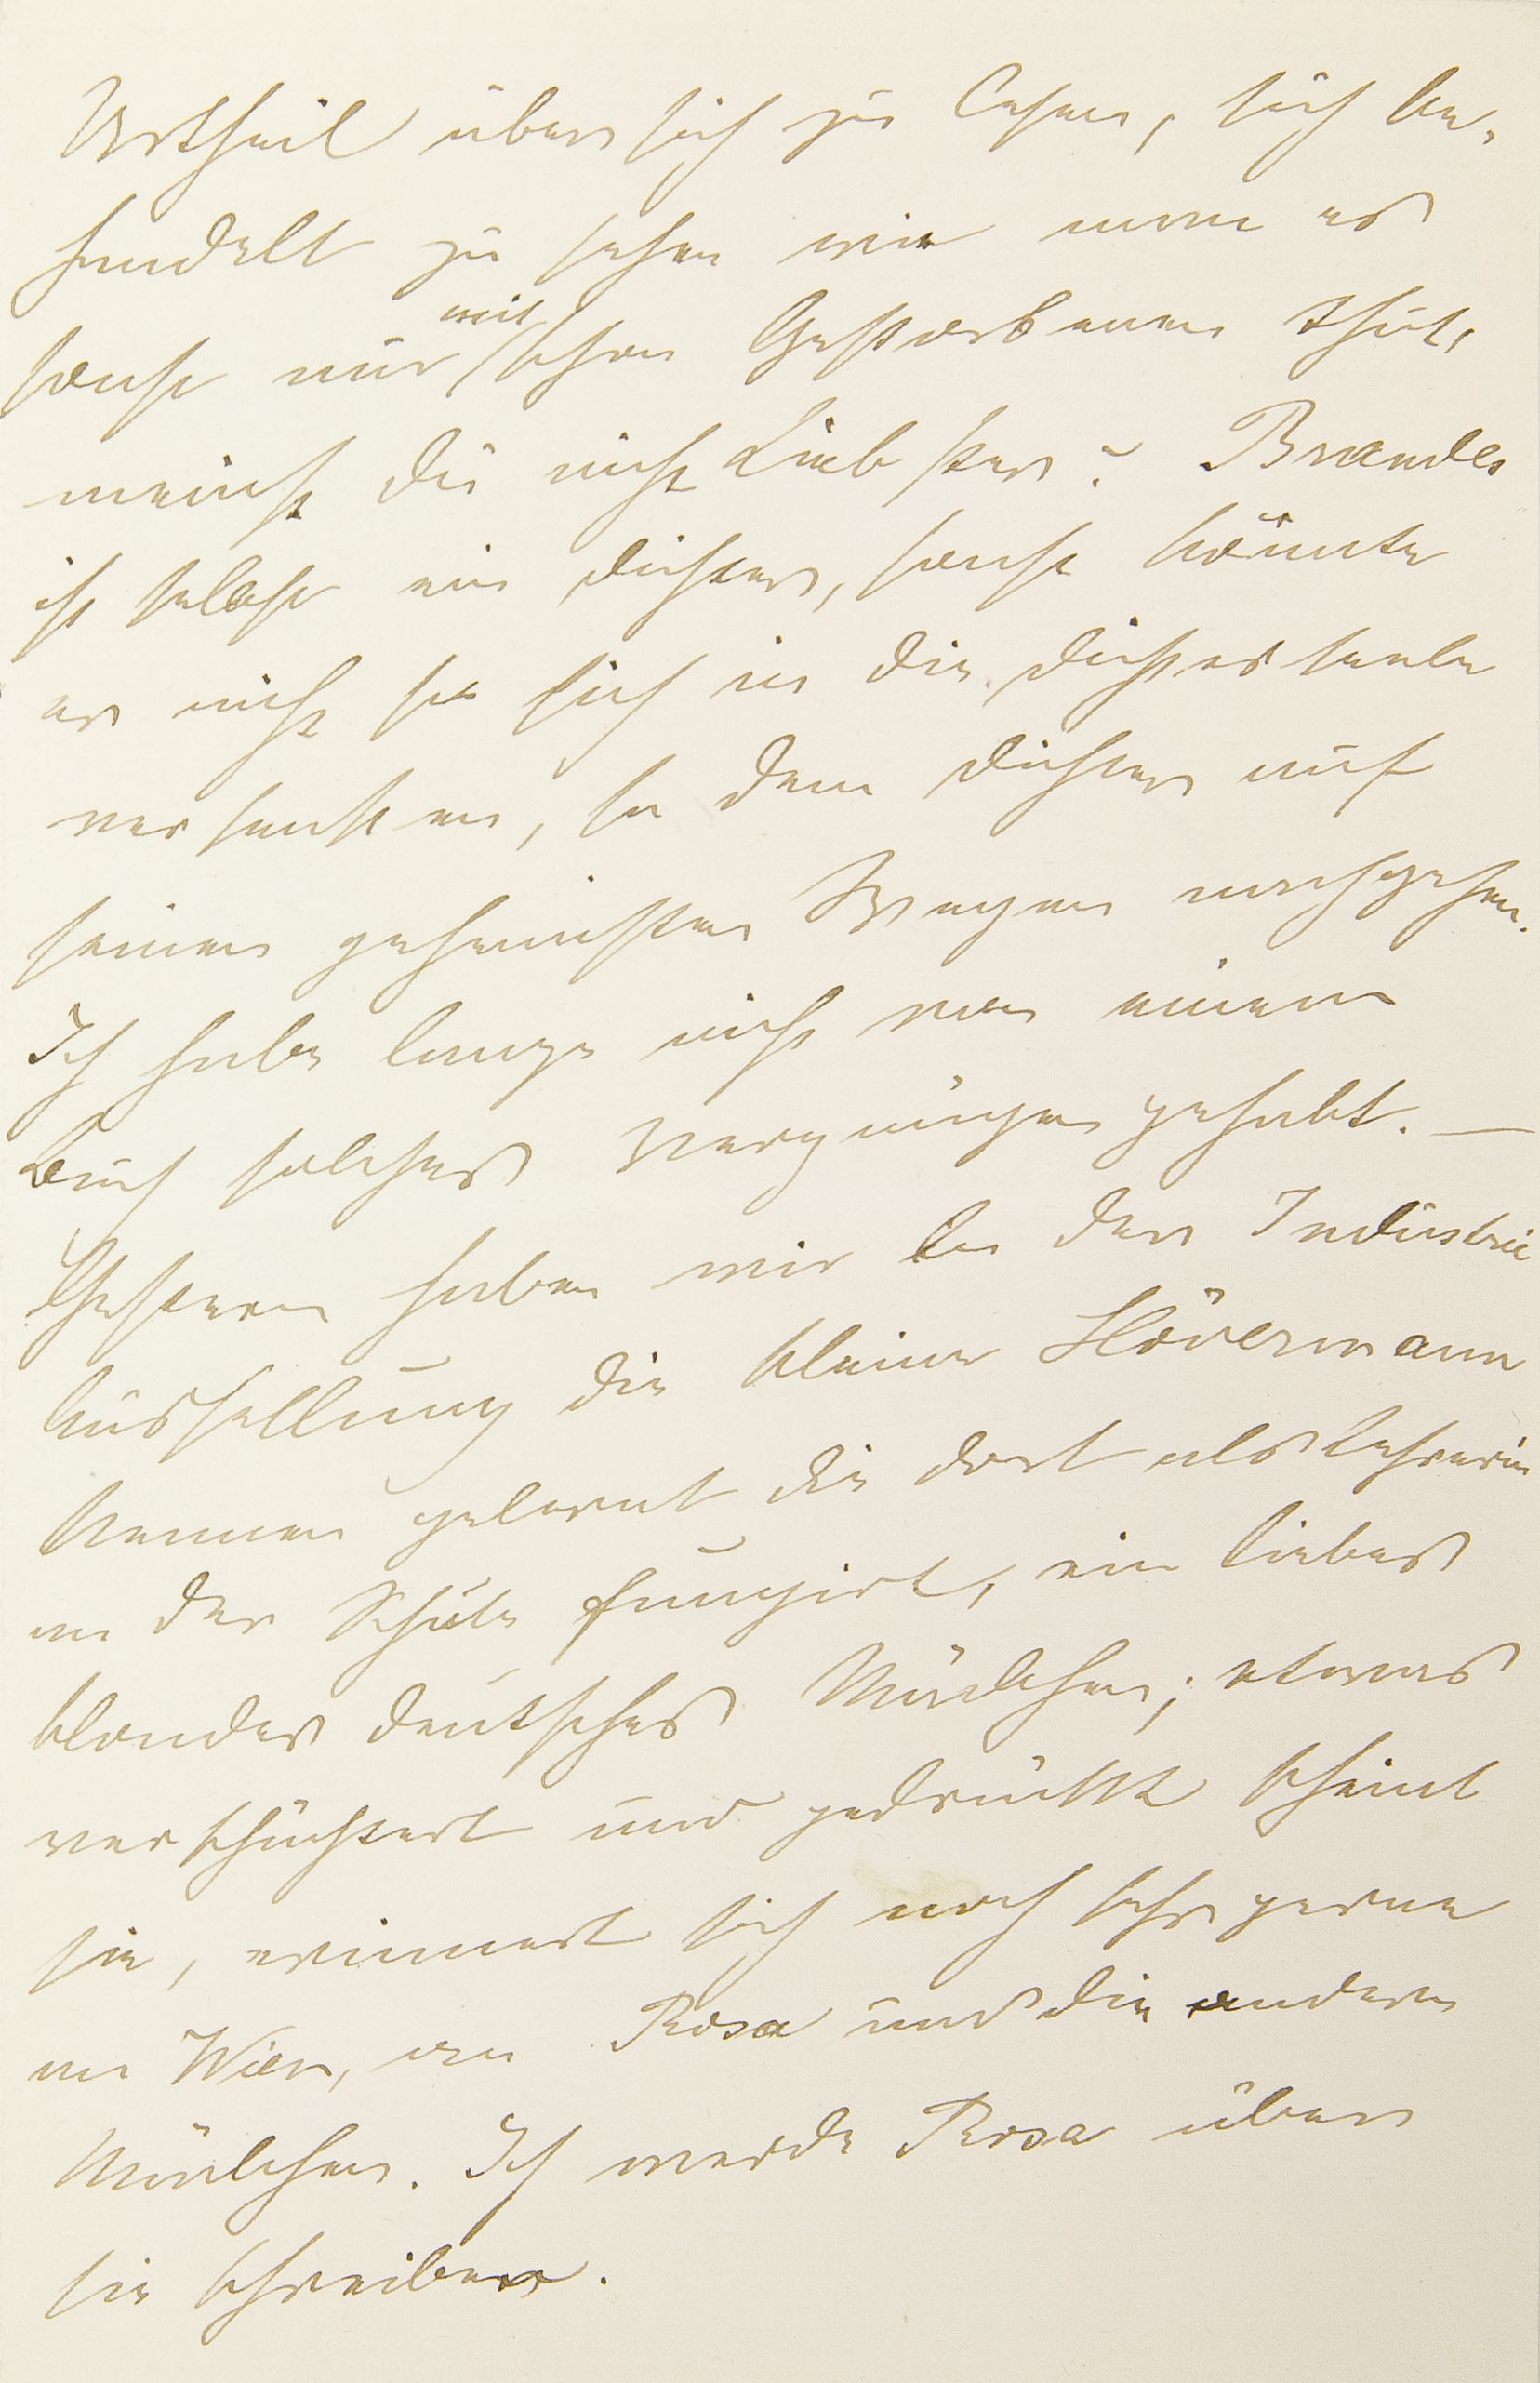 Urtheil über sich zu lesen, sich be-
handelt zu sehen wie man es
sonst nur mit schon Gestorbenen thut,
meinst du nicht Liebster? Brandes
ist selbst ein Dichter, sonst könnte
er nicht so sich in die Dichterseele
versenken, so dem Dichter auf
seinen geheimsten Wegen nachgehen.
Ich habe lange nicht von einem
Buch solches Vergnügen gehabt. —
Gestern haben wir in der Industrie
Ausstellung die kleine Hövermann
kennen gelernt die dort als Lehrerin
an der Schule fungirt, ein liebes
blondes deutsches Mädchen; etwas
verschüchtert und gedrückt scheint
sie, erinnert sich noch sehr gerne
an Wien, an Rosa und die andern
Mädchen. Ich werde Rosa über
sie schreiben.